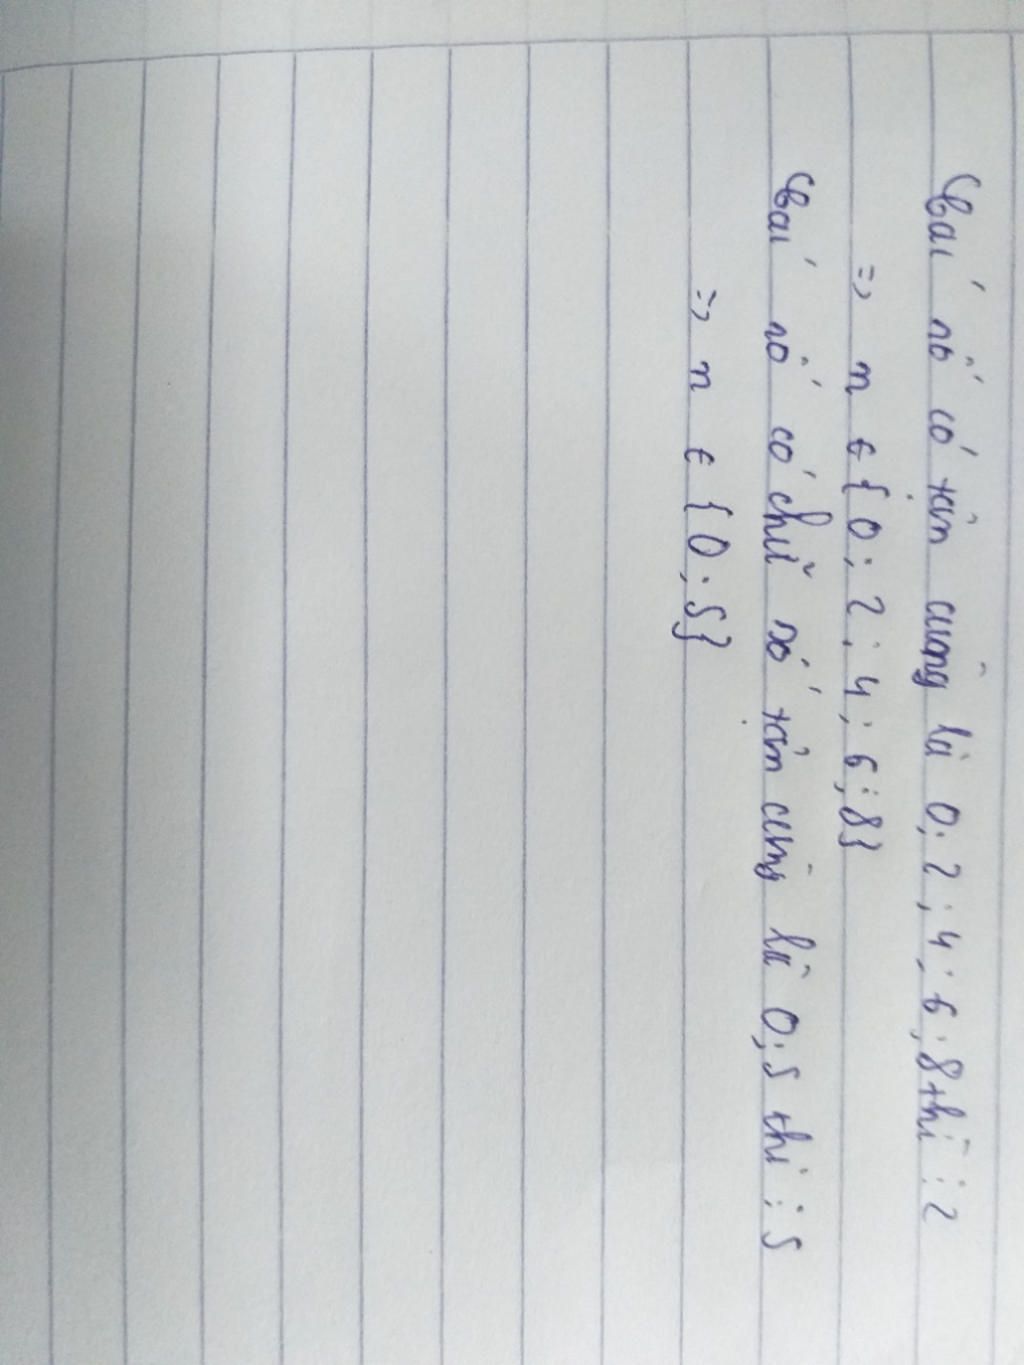 Các số có tận cùng là 0; 2; 4; 6; 8 thì ⋮ 2
=> n ∈ {0; 2; 4; 6; 8}
Các số có chữ số tận cùng là 0; 5 thì ⋮ 5
=> n ∈ {0; 5}